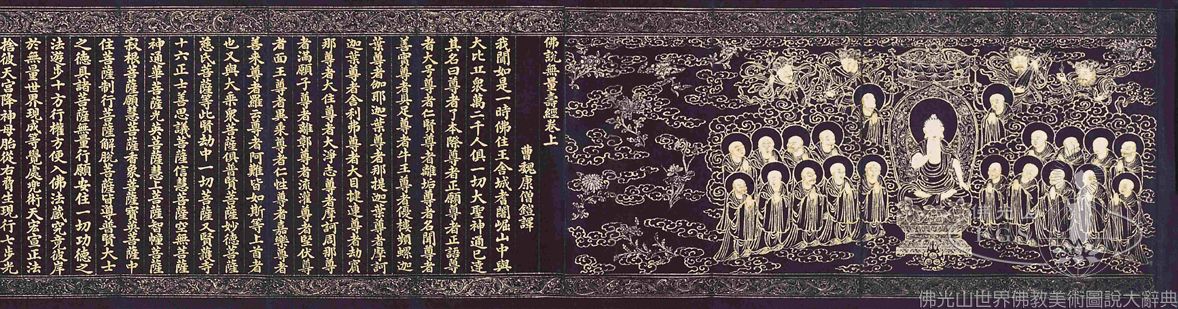 佛說無量壽經卷上
曹魏康僧鎧譯
我聞如是一時佛住王舍城耆闍崛山中與
大比丘眾萬二千人俱一切大聖神通已達
其名曰尊者了本際尊者正願尊者正語尊
者大号尊者仁賢尊者離垢尊者名聞尊者
善實尊者具足尊者牛王尊者優樓頻蠡迦
葉尊者伽耶迦葉尊者那提迦葉尊者摩訶
迦葉尊者舍利弗尊者大目揵連尊者劫賓
那尊者大住尊者大淨志尊者摩訶周那尊
者滿願子尊者離鄣尊者流灌尊者堅伏尊
者面王尊者異乘尊者仁性尊者嘉樂尊者
善來尊者羅云尊者阿難皆如斯等上首者
也又與大乘眾菩薩俱普賢菩薩妙德菩薩
慈氏菩薩等此賢劫中一切菩薩又賢護等
十六正士善思議菩薩信慧菩薩空無菩薩
神通華菩薩光英菩薩慧上菩薩智幢菩薩
寂根菩薩願慧菩薩香象菩薩寶英菩薩中
住菩薩制行菩薩解脫菩薩皆遵普賢大士
之德具諸菩薩無量行願安住一切功德之
法遊步十方行權方便入佛法藏究竟彼岸
於無量世界現成等覺處兜術天宏宣正法
捨彼天宮降神母胎從右脅生現行七步光
佛光山
佛光山世界佛教美術圖說大辭典